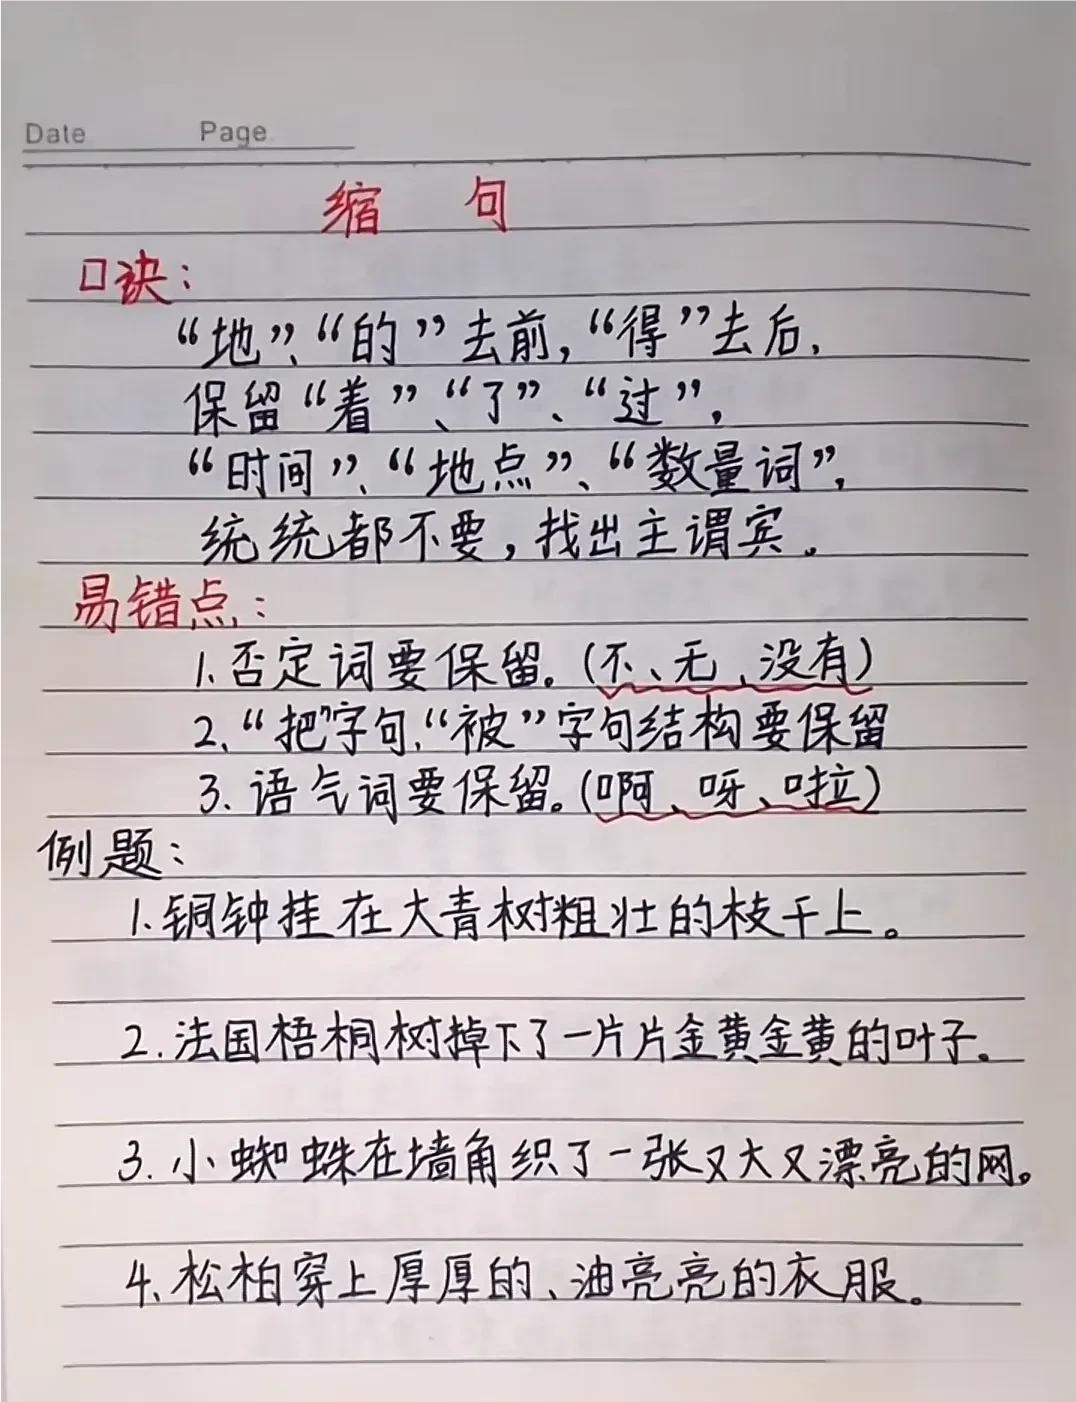 Date Page
缩 句
口诀：
“地”、“的”去前，“得”去后，
保留“着”、“了”、“过”，
“时间”、“地点”、“数量词”，
统统都不要，找出主谓宾。
易错点：
1.否定词要保留。(不、无、没有)
2、“把”字句、“被”字句结构要保留
3.语气词要保留。(啊、呀、啦)
例题：
1.铜钟挂在大青树粗壮的枝干上。
2.法国梧桐树掉下了一片片金黄金黄的叶子。
3.小蜘蛛在墙角织了一张又大又漂亮的网。
4.松柏穿上厚厚的、油亮亮的衣服。